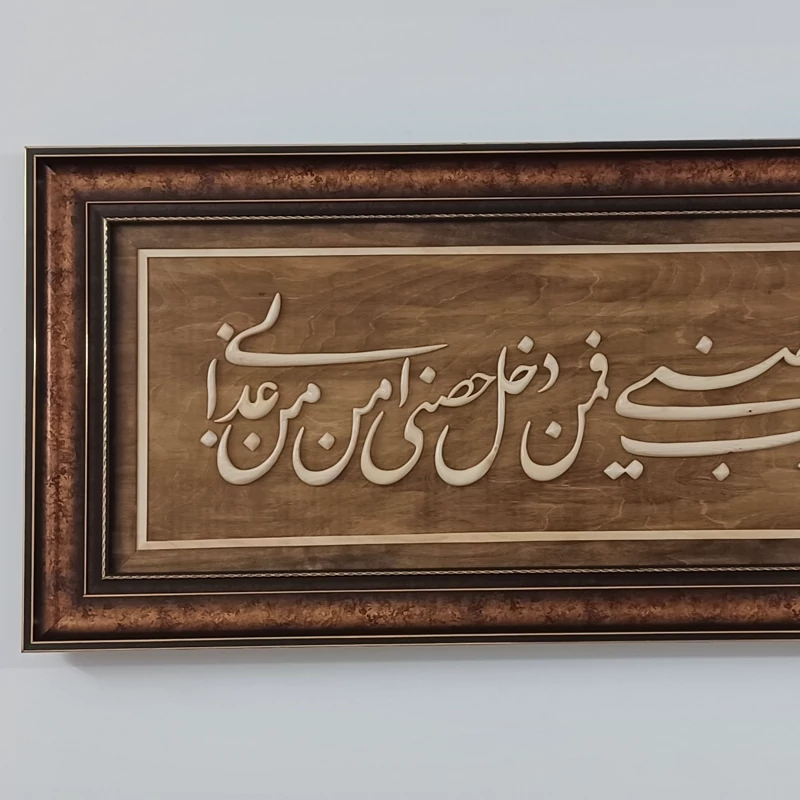 حصنی فمن دخل حصنی امن من عذابی